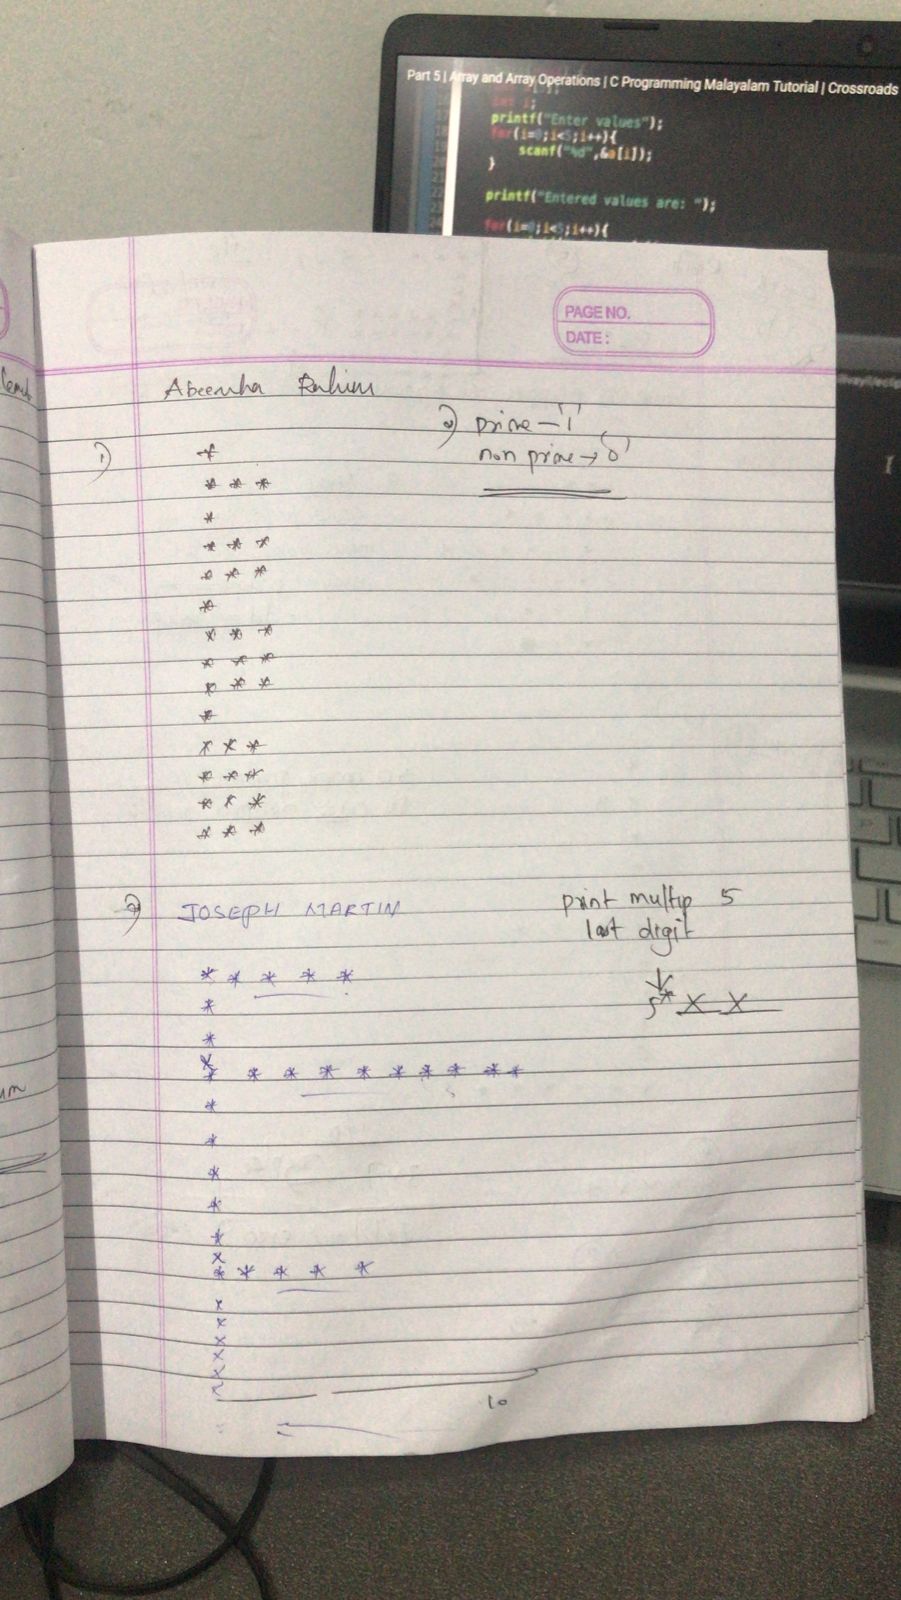 Part 5 | Array and Array Operations | C Programming Malayalam Tutorial | Crossroads
int i;
printf("Enter values");
for(i=0;i<5;i++){
scanf("%d",&a[i]);
}
printf("Entered values are: ");
for(i=0;i<5;i++){
PAGE NO.
DATE:
Rahim
1)
*
* * *
*
* * *
* * *
*
* * *
* * *
* * *
*
* * *
* * *
* * *
* * *
2) prime - '1'
non prime → '0'
2) JOSEPH MARTIN
* * * * *
*
*
*
* * * * * * * * * *
*
*
*
*
*
*
* * * * *
*
*
*
*
*
print multip 5
last digit
5* X X
10